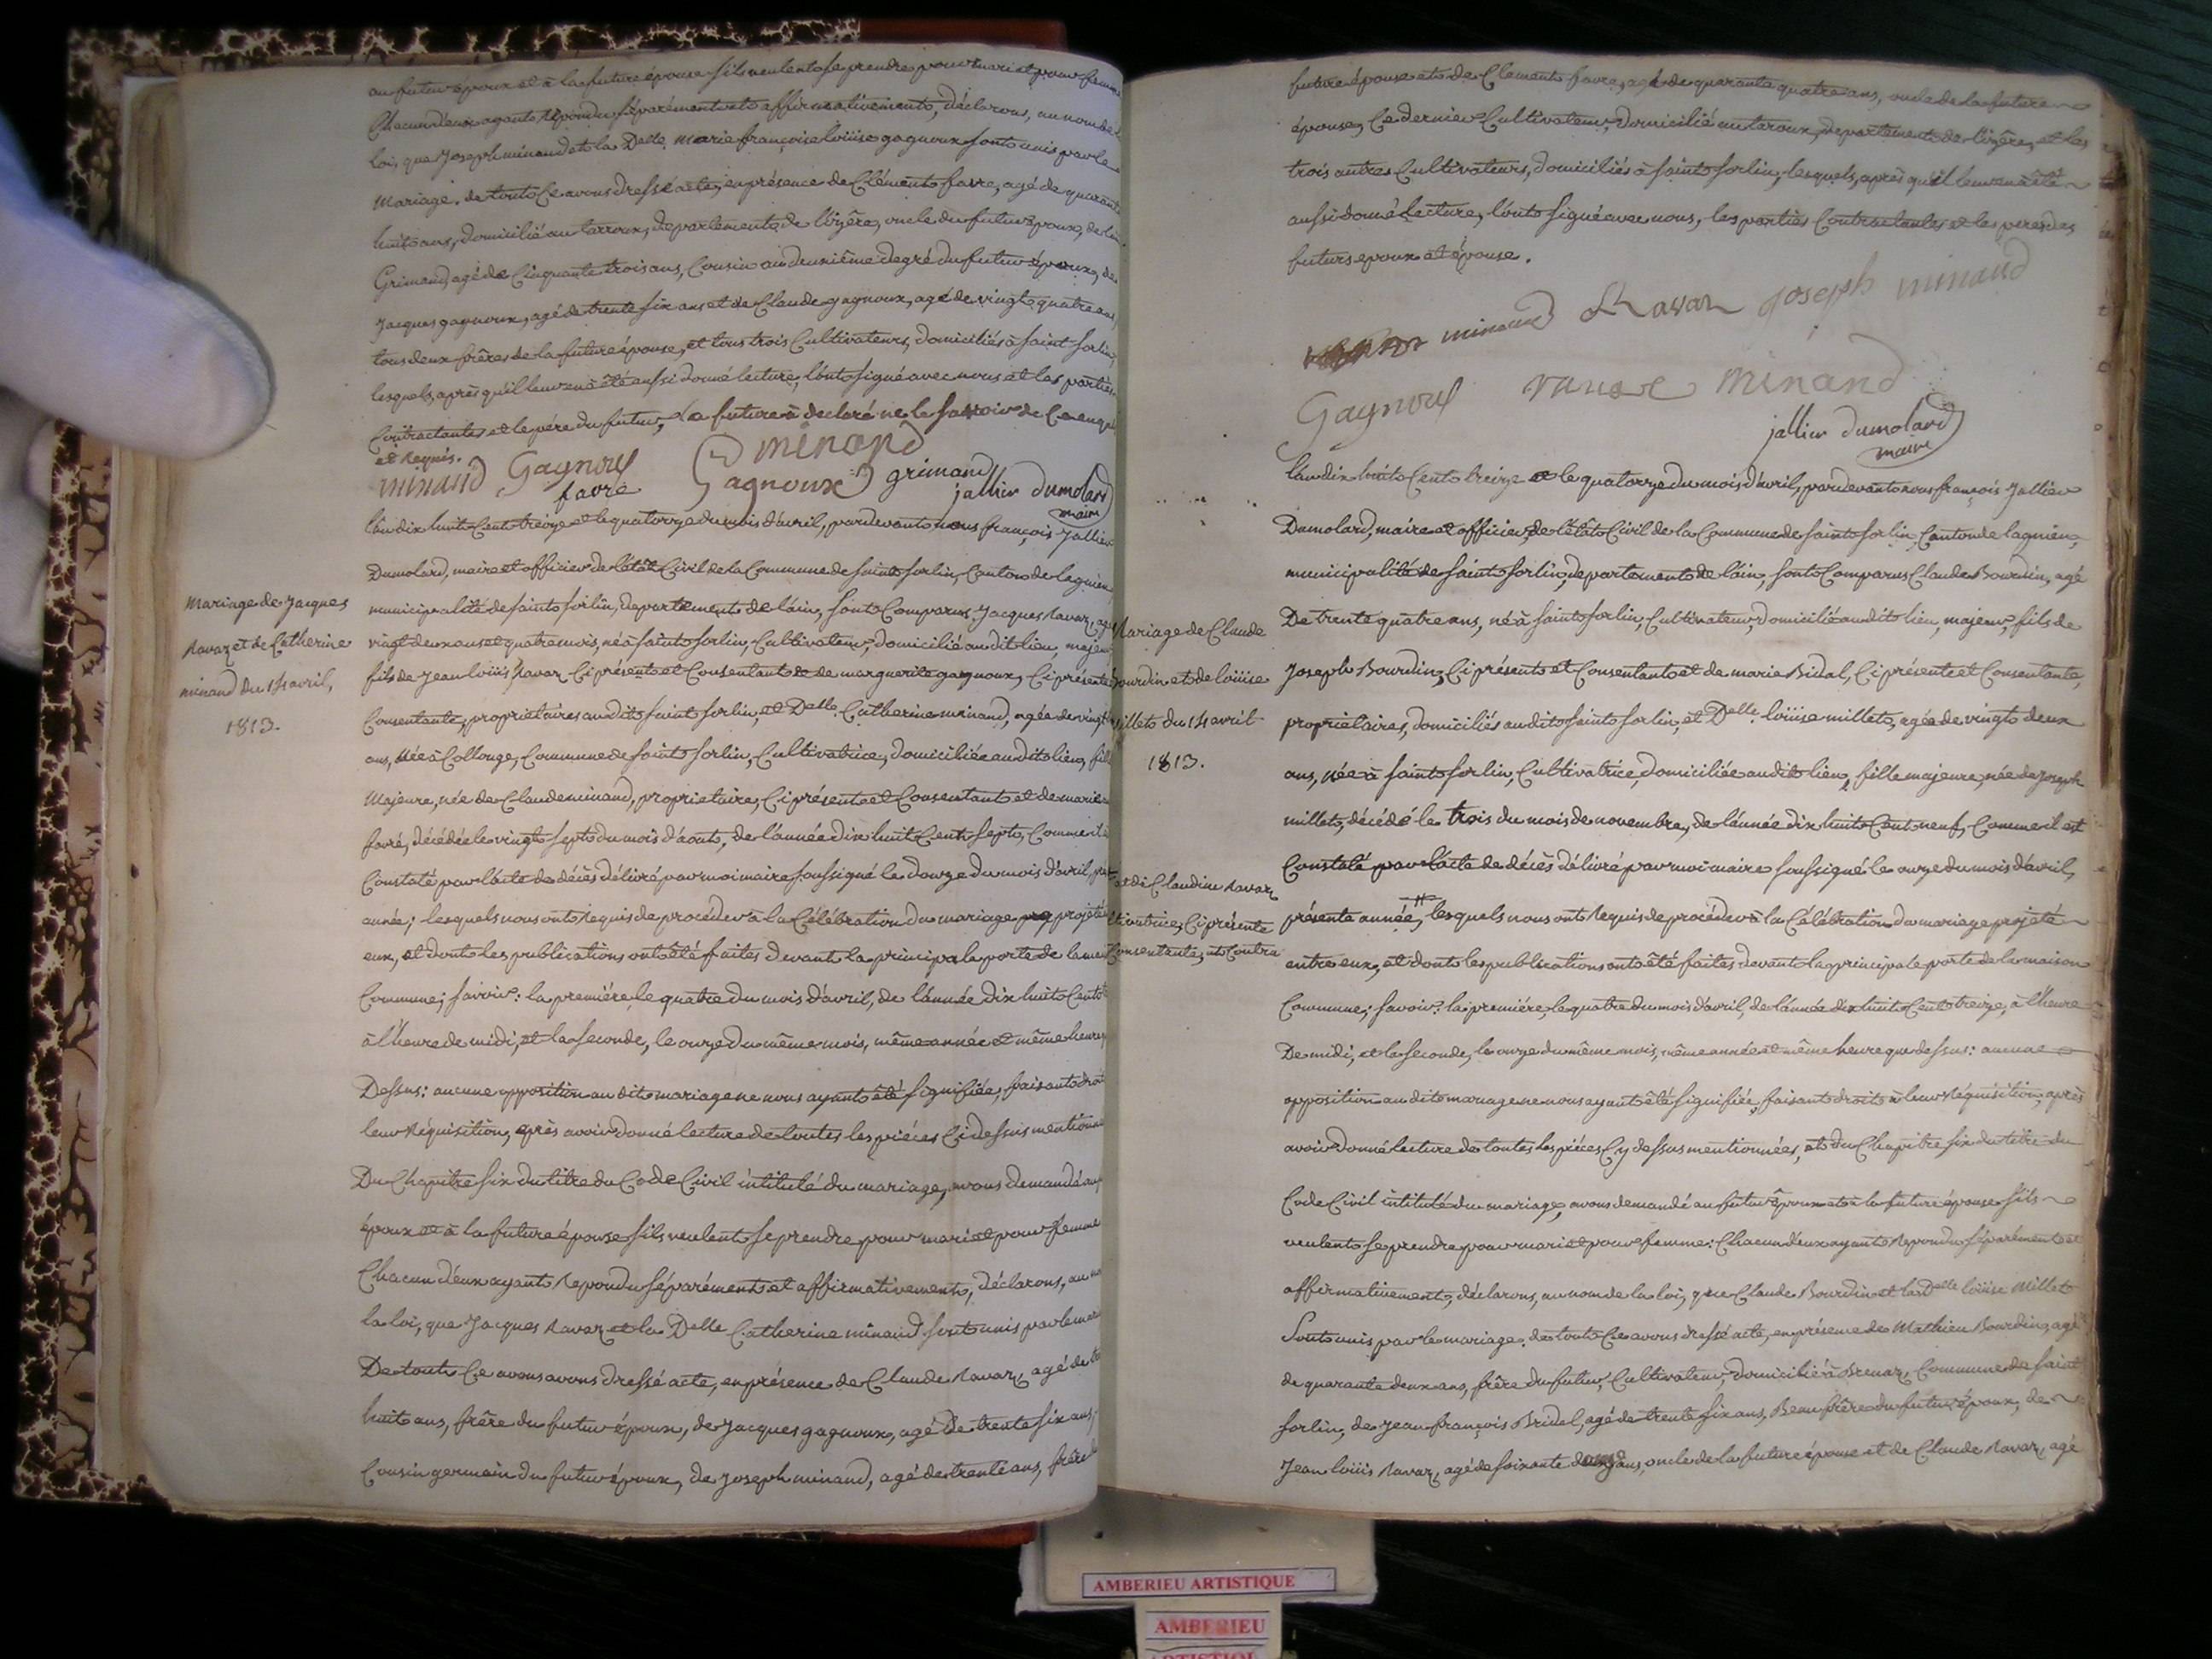 au futur époux et à la future épouse s'ils veulent se prendre pour mari et pour femme
Chacun d'eux ayant répondu séparément et affirmativement, déclarons, au nom de
loi, que Joseph minand et la Delle. Marie françoise loüise gagnoux sont unis par le
Mariage. de tout Ce avons dressé acte, en présence de Clément favre, agé de quarante
huit ans, domicilié au departement de l'izêre, oncle du futur époux, de
Grimand, agé de Cinquante trois ans, Cousin au deuxième degré du futur époux, de
Jacques gagnoux, agé de trente six ans et de Claude gagnoux, agé de vingt quatre ans
tous deux frères de la future épouse, et tous trois Cultivateurs, domiciliés à saint sorlin,
lesquels, après qu'il leur en à été aussi donné lecture, l'ont signé avec nous et les parties
Contractantes et le père du futur, la future à declaré ne le savoir de Ce enqui
et Requis.
minand Gagnoux minand
favre Gagnoux grimand jallier dumolard
maire
Mariage de Jacques
Ravaz et de Catherine
minand du 14 avril,
1813.
L'an dix huit Cent treize et le quatorze du mois d'avril, pardevant nous françois Jallier
Dumolard, maire et officier de l'état Civil de la Commune de saint sorlin, Canton de lagnieu,
municipalité de saint sorlin, departement de l'ain, sont Comparus Jacques Ravaz, agé
vingt deux ans et quatre mois, né à saint sorlin, Cultivateur, domicilié au dit lieu, majeur
fils de Jean loüis Ravaz Ci présent et Consentant et de marguerite gagnoux, Ci présente
Consentante, propriétaires au dit saint sorlin, et Delle. Catherine minand, agée de vingt
ans, Née à Collonge, Commune de saint sorlin, Cultivatrice, domiciliée au dit lieu, fille
Majeure, née de Claude minand, propriétaire, Ci présent et Consentant et de marie
favre, décédée le vingt sept du mois d'août, de l'année dix huit Cent sept, Comme il e
Constaté par l'acte de décès délivré par moi maire soussigné le douze du mois d'avril,
année; lesquels nous ont Requis de procéder à la Célébration du mariage projeté
eux, et dont les publications ont été faites devant la principale porte de la
Commune; savoir: la première, le quatre du mois d'avril, de l'année dix huit Cent
à l'heure de midi, et la seconde, le onze du même mois, même année et même heure
Dessus: aucune opposition au dit mariage ne nous ayant été signifiée, faisant droit
leur Réquisition, après avoir donné lecture de toutes les pièces Ci dessus mentionn
Du Chapitre six du titre du Code Civil intitulé du mariage, avons demandé au
époux et à la future épouse s'ils veulent se prendre pour mari et pour femme
Chacun d'eux ayant Répondu séparément et affirmativement, déclarons, au no
la loi, que Jacques Ravaz et la Delle Catherine minand sont unis par le mar
De tout Ce avons avons dressé acte, en présence de Claude Ravaz, agé de
huit ans, frère du futur époux, de Jacques gagnoux, agé de trente six ans,
Cousin germain du futur époux, de Joseph minand, agé de trente ans, frère
future épouse et de Clément favre, agé de quarante quatre ans, oncle de la future
épouse, Ce dernier Cultivateur, domicilié au departement de l'izère, et les
trois autres Cultivateurs, domiciliés à saint sorlin, lesquels, après qu'il leur en à été
aussi donné lecture, l'ont signé avec nous, les parties Contractantes et les peres des
futurs epoux et épouse.
minand Ravaz Joseph minand
Gagnoux minand
jallier dumolard
maire
Mariage de Claude
Bourdin et de loüise
Millet du 14 avril
1813.
L'an dix huit Cent treize et le quatorze du mois d'avril, pardevant nous françois Jallier
Dumolard, maire et officier de l'état Civil de la Commune de saint sorlin, Canton de lagnieu,
municipalité de saint sorlin, departement de l'ain, sont Comparus Claude Bourdin, agé
De trente quatre ans, né à saint sorlin, Cultivateur, domicilié au dit lieu, majeur, fils de
Joseph Bourdin, Ci présent et Consentant et de marie Bidal, Ci présente et Consentante,
propriétaires, domiciliés au dit saint sorlin, et Delle. loüise millet, agée de vingt deux
ans, née à saint sorlin, Cultivatrice, domiciliée au dit lieu, fille majeure, née de Joseph
millet, décédé le trois du mois de novembre, de l'année dix huit Cent neuf, Comme il est
Constaté par l'acte de décès délivré par moi maire soussigné le onze du mois d'avril,
et de Claudine Ravaz
Cultivatrice, Ci présente
Consentante,
présente année, lesquels nous ont Requis de procéder à la Célébration du mariage projeté
entre eux, et dont les publications ont été faites devant la principale porte de la maison
Commune; savoir: la première, le quatre du mois d'avril, de l'année dix huit Cent treize, à l'heure
De midi, et la seconde, le onze du même mois, même année et même heure que dessus: aucune
opposition au dit mariage ne nous ayant été signifiée, faisant droit à leur Réquisition, après
avoir donné lecture de toutes les pièces Cy dessus mentionnées, et du Chapitre six du titre du
Code Civil intitulé du mariage, avons demandé au futur époux et à la future épouse s'ils
veulent se prendre pour mari et pour femme: Chacun d'eux ayant Répondu séparément et
affirmativement, déclarons, au nom de la loi, que Claude Bourdin et la Delle loüise Millet
Sont unis par le mariage. de tout Ce avons dressé acte, en présence de Mathieu Bourdin, agé
de quarante deux ans, frère du futur, Cultivateur, domicilié à Brenaz, Commune de saint
sorlin, de Jean françois Bridel, agé de trente six ans, Beau frère du futur époux, de
Jean loüis Ravaz, agé de soixante ans, oncle de la future épouse et de Claude Ravaz, agé
AMBERIEU ARTISTIQUE
AMBERIEU
ARTISTIQUE